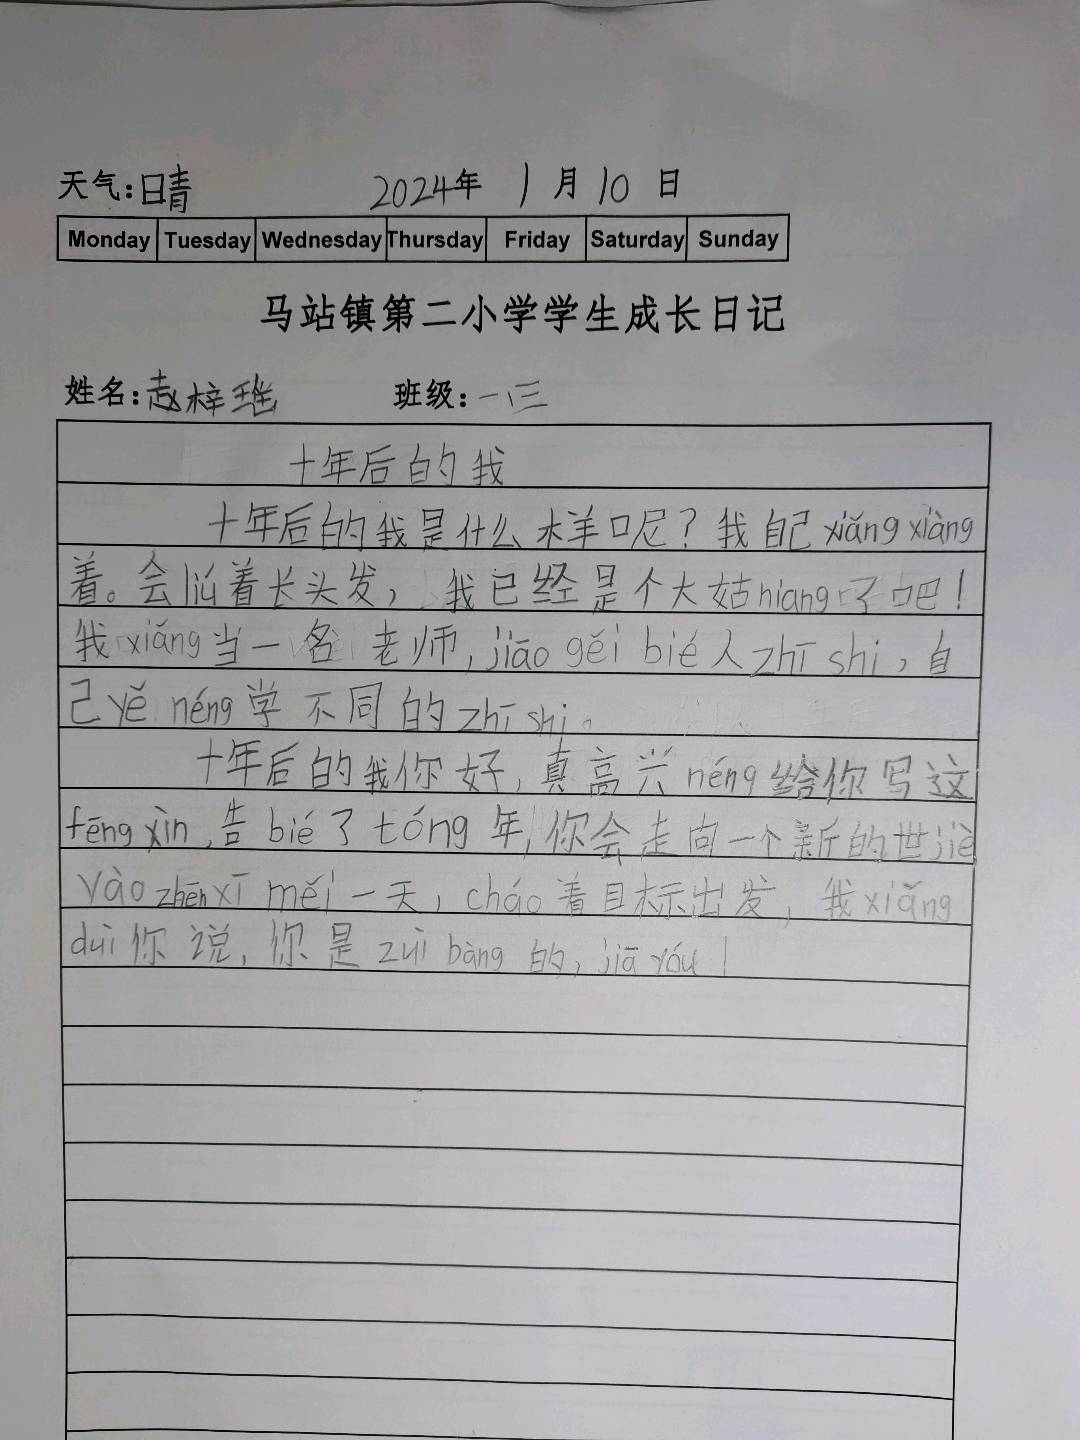 天气:晴 2024年 1月10日
Monday Tuesday Wednesday Thursday Friday Saturday Sunday
马站镇第二小学学生成长日记
姓名:赵梓 班级:一(三
十年后的我
十年后的我是什么样呢?我自己xiǎng xiàng
着。会liú着长头发,我已经是个大姑niang了吧!
我xiǎng当一名老师,jiāo gěi bié人zhī shi,自
己yě néng学不同的zhī shi。
十年后的我你好,真高兴néng给你写这
fēng xìn,告bié了tóng年,你会走向一个新的世jiè
yào zhēn xī měi一天,cháo着目标出发,我xiǎng
duì你说,你是zuì bàng的,jiā yóu!